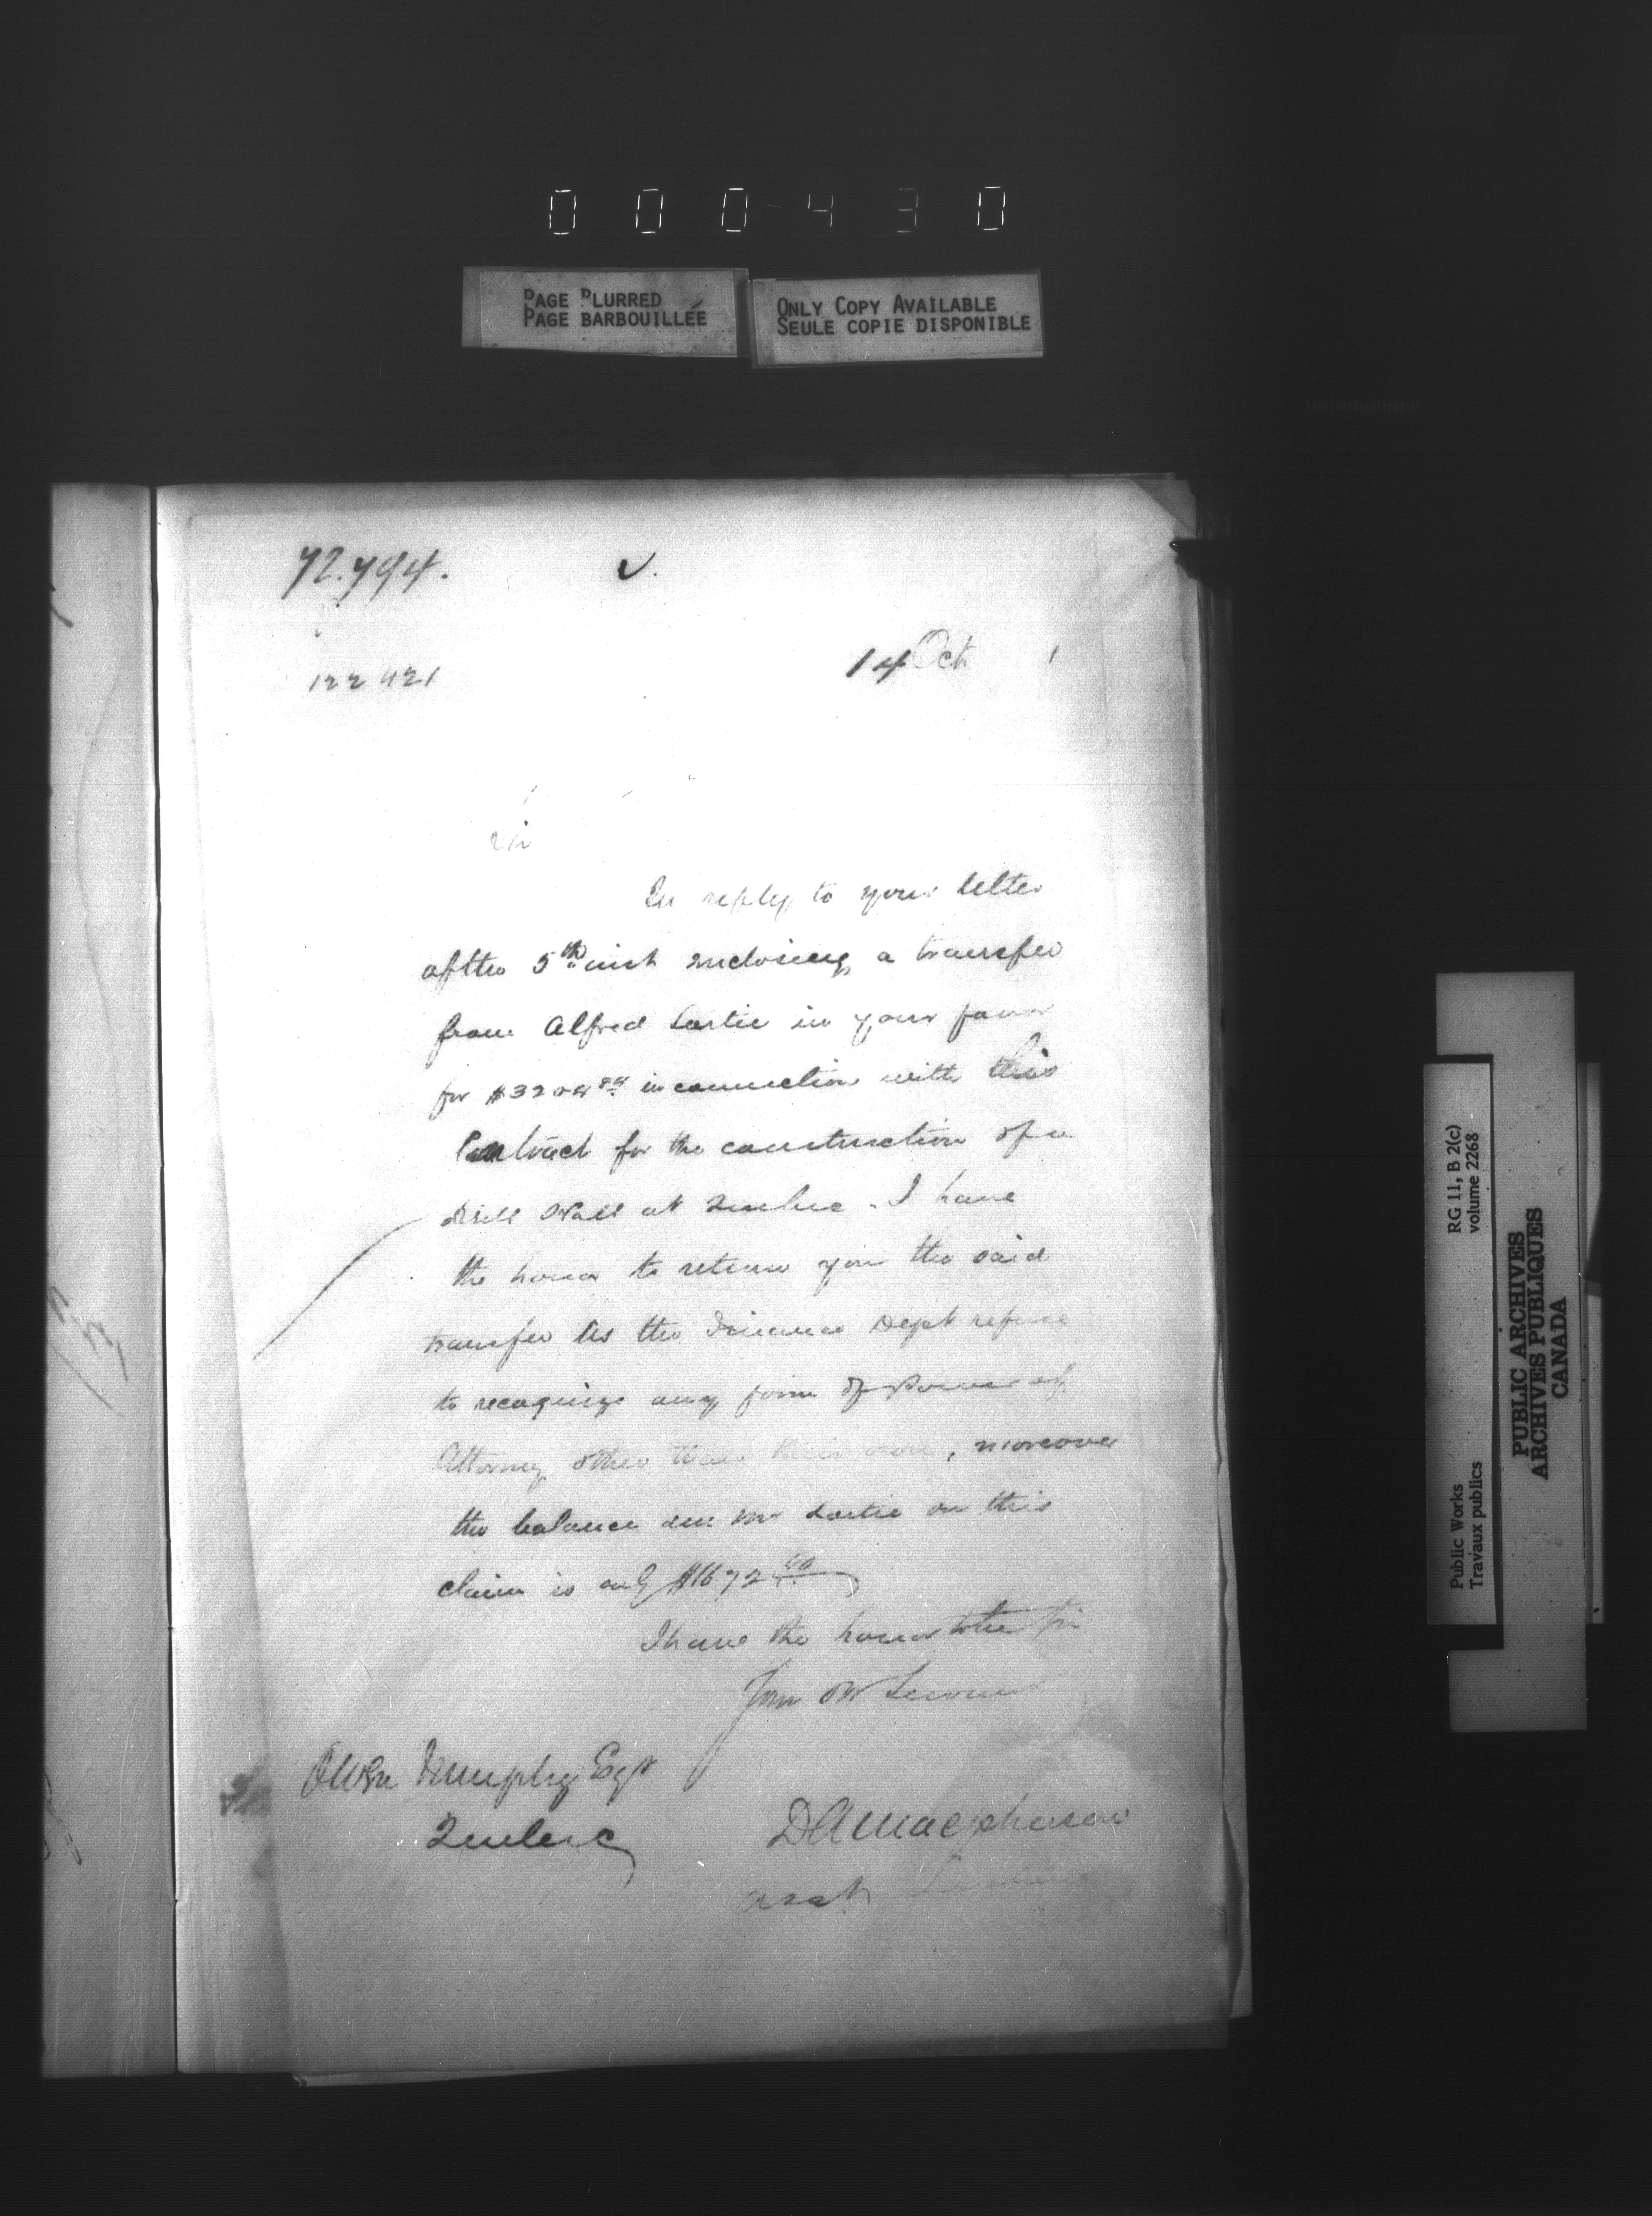 000430
PAGE BLURRED
PAGE BARBOUILLÉE
ONLY COPY AVAILABLE
SEULE COPIE DISPONIBLE
72.794.
14 Oct 1
122421
Sir
In reply to your letter
of the 5th inst enclosing a transfer
from Alfred in your favor
for $3204 84 in connection with this
Contract for the construction of a
Drill Hall at Quebec. I have
the honor to return you the said
transfer as the Finance Dept refuse
to recognize any form of Power of
Attorney other than their own, moreover
the balance due Mr on this
claim is only $1672
I have the honor to be Sir
Your Ob Servant
Owen Murphy Esqr
Quebec
D A Macpherson
Public Works
Travaux publics
RG 11, B 2(c)
volume 2268
PUBLIC ARCHIVES
ARCHIVES PUBLIQUES
CANADA